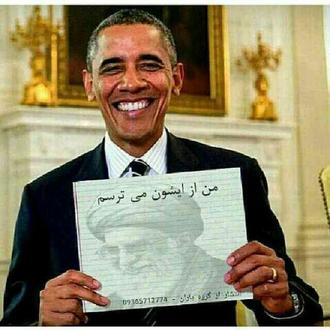 من از ایشون می ترسم
انتشار از گروه یاران - 09365712774